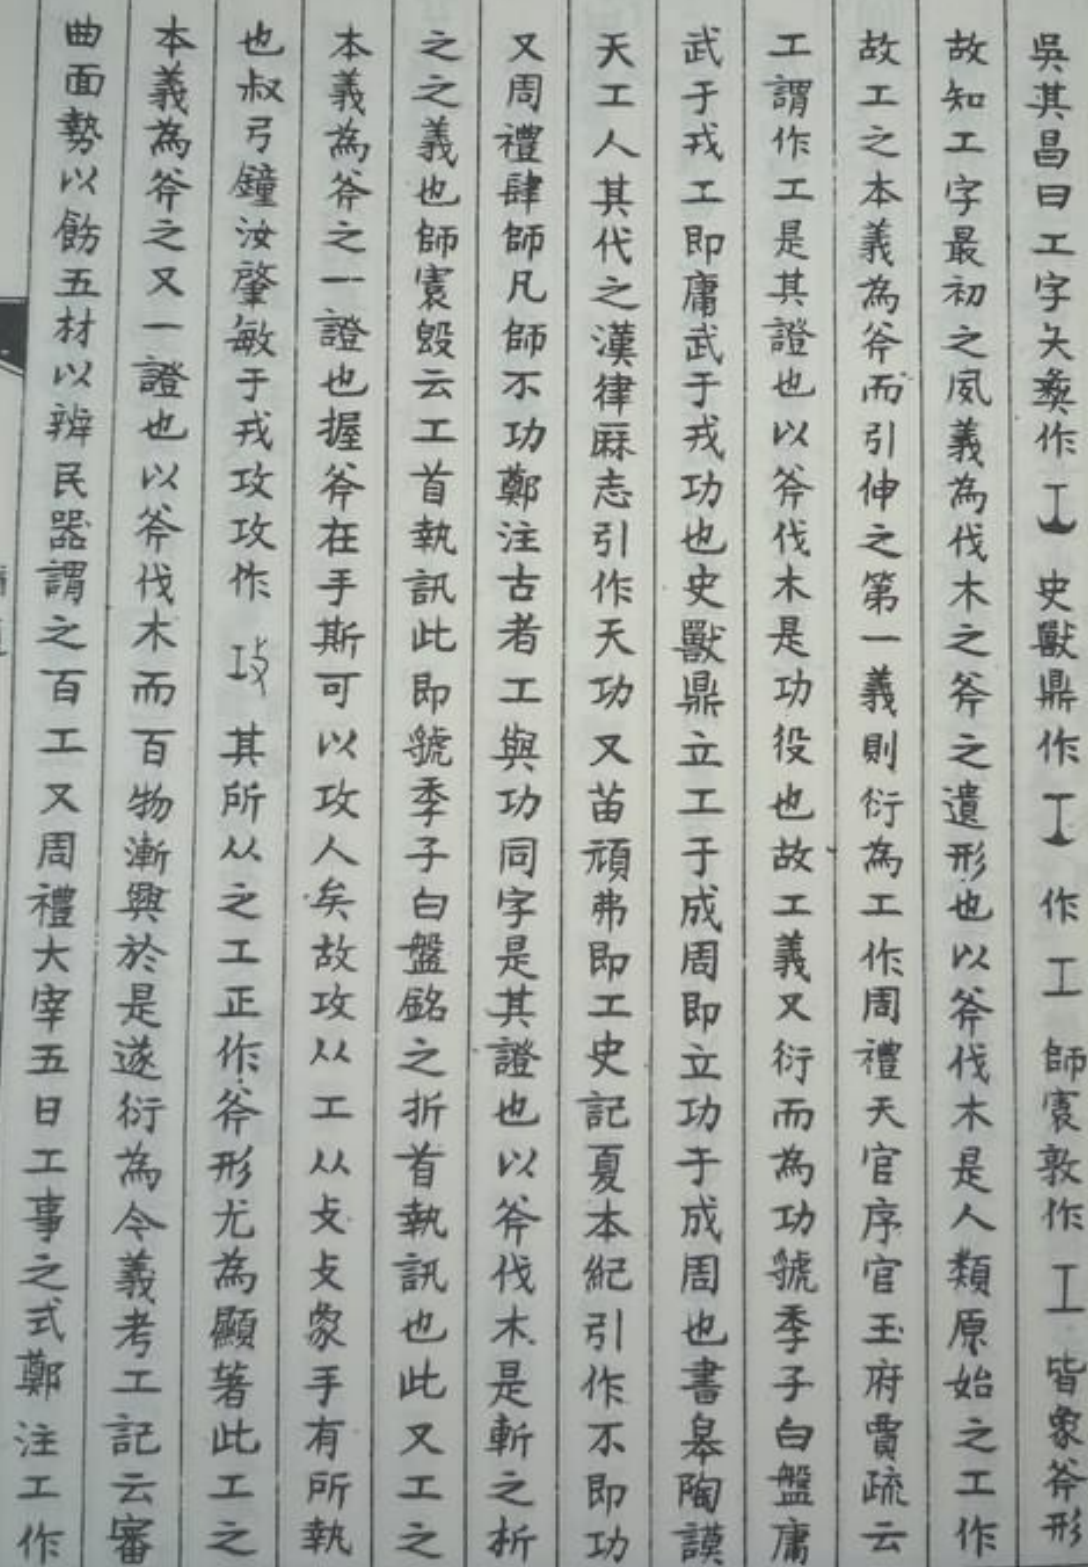 吳其昌曰工字夨彝作 史獸鼎作 作工師㝨敦作工皆象斧形
故知工字最初之夙義為伐木之斧之遺形也以斧伐木是人類原始之工作
故工之本義為斧而引伸之第一義則衍為工作周禮天官序官玉府賈疏云
工謂作工是其證也以斧伐木是功役也故工義又衍而為功虢季子白盤庸
武于戎工即庸武于戎功也史獸鼎立工于成周即立功于成周也書皋陶謨
天工人其代之漢律厤志引作天功又苗頑弗即工史記夏本紀引作不即功
又周禮肆師凡師不功鄭注古者工與功同字是其證也以斧伐木是斬之折
之之義也師㝨毁云工首執訊此即虢季子白盤銘之折首執訊也此又工之
本義為斧之一證也握斧在手斯可以攻人矣故攻从工从攴攴象手有所執
也叔弓鐘汝肇敏于戎攻攻作 其所从之工正作斧形尤為顯著此工之
本義為斧之又一證也以斧伐木而百物漸興於是遂衍為今義考工記云審
曲面勢以飭五材以辨民器謂之百工又周禮大宰五曰工事之式鄭注工作